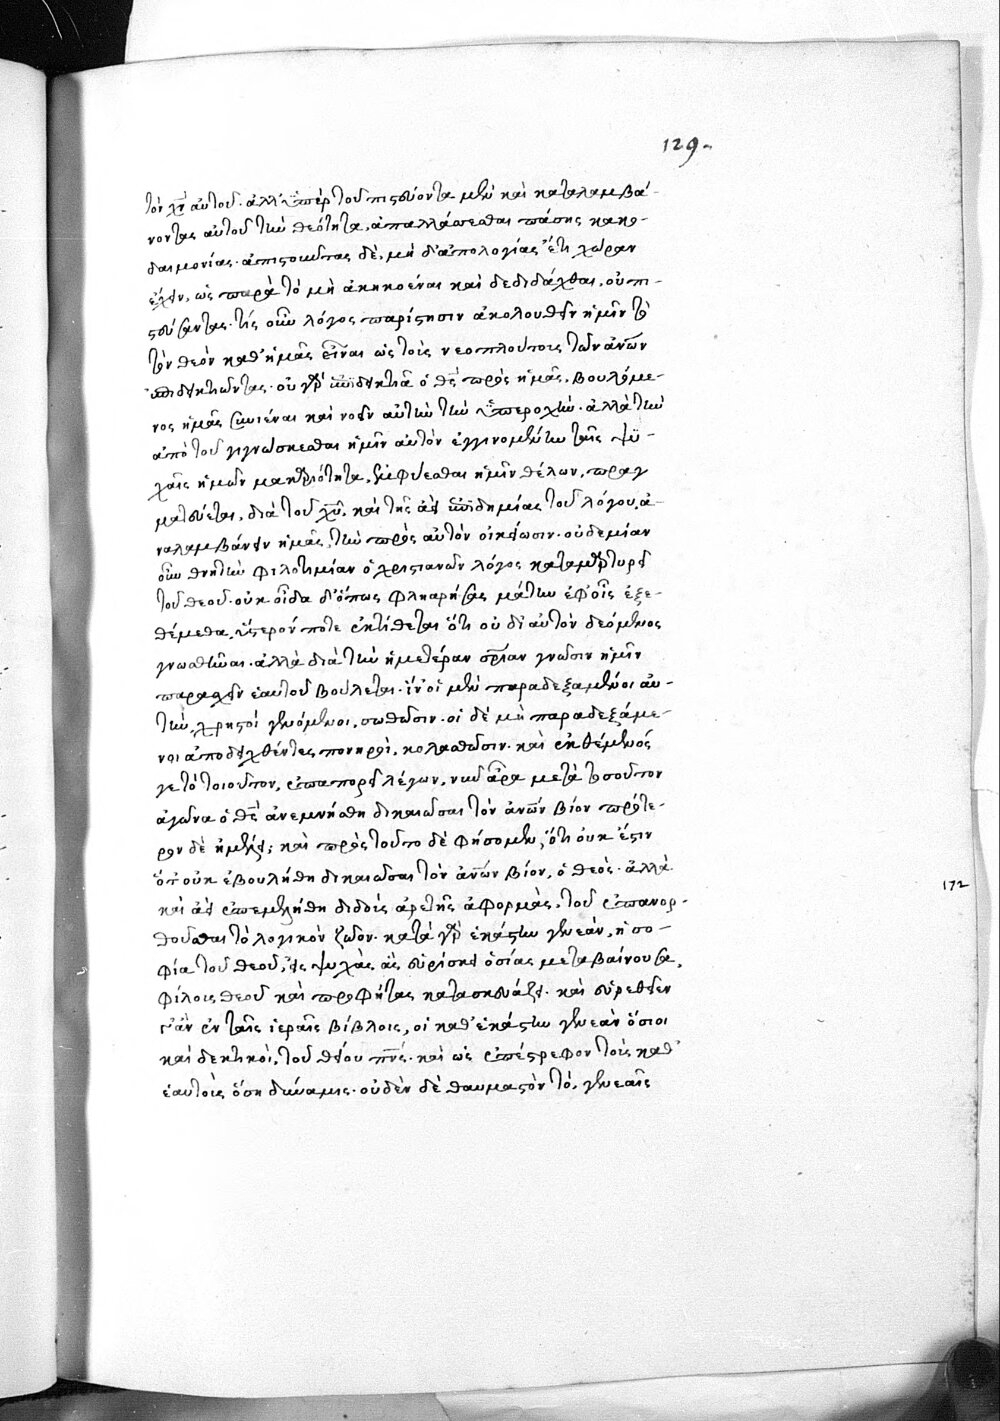 129.
τὸν χν αὐτοῦ. ἀλλ' ὑπὲρ τοῦ πιστεύοντα μὲν καὶ καταλαμβά-
νοντας αὐτοῦ τὴν θεότητα, ἀπαλλάττεσθαι πάσης κακο-
δαιμονίας. ἀπιστοῦντας δὲ, μὴ δ' ἀπολογίας ἔτι χώραν
ἔχειν, ὡς παρὰ τὸ μὴ ἀκηκοέναι καὶ δεδιδάχθαι, οὐ πι-
στεύσαντας. τίς οὖν λόγος παρίστησιν ἀκολουθεῖν ἡμῖν τὸ
τὸν θεὸν καθ' ἡμᾶς εἶναι ὡς τοῖς νεοπλούτοις τῶν ἀνων
ἐπιδεικτιῶντας. οὐ γὰρ ἐπιδεικτιᾷ ὁ θς πρὸς ἡμᾶς, βουλόμε-
νος ἡμᾶς συνιέναι καὶ νοεῖν αὐτὴν τὴν ὑπεροχήν. ἀλλὰ τὴν
ἀπὸ τοῦ γιγνώσκεσθαι ἡμῖν αὐτὸν ἐγγινομένην ταῖς ψυ-
χαῖς ἡμῶν μακαριότητα, ἐμφύεσθαι ἡμῖν θέλων, πραγ
ματεύεται, διὰ τοῦ χυ, καὶ τῆς ἀεὶ ἐπιδημίας τοῦ λόγου, ἀ-
ναλαμβάνειν ἡμᾶς, τὴν πρὸς αὐτὸν οἰκείωσιν. οὐδεμίαν
οὖν θνητὴν φιλοτιμίαν ὁ χριστιανῶν λόγος καταμαρτυρεῖ
τοῦ θεοῦ. οὐκ οἶδα δ' ὅπως φληαρήσας μάτην ἐφ' οἷς ἐξε-
θέμεθα, ὕστερόν ποτε ἐκτίθεται ὅτι οὐ δι αὑτὸν δεόμενος
γνωσθῆναι. ἀλλὰ διὰ τὴν ἡμετέραν σριαν γνῶσιν ἡμῖν
παρασχεῖν ἑαυτοῦ βούλεται. ἵν' οἱ μὲν παραδεξάμενοι αὐ-
τὴν, χρηστοὶ γενόμενοι, σωθῶσιν. οἱ δὲ μὴ παραδεξάμε-
νοι ἀποδειχθέντες πονηροὶ, κολασθῶσιν. καὶ ἐκθέμενός
γε τὸ τοιοῦτον, ἐπαπορεῖ λέγων, νῦν ἄρα μετὰ τοσοῦτον
αἰῶνα ὁ θς ἀνεμνήσθη δικαιῶσαι τὸν ἀνων βίον πρότε-
ρον δὲ ἠμέλει; καὶ πρὸς τοῦτο δὲ φήσομεν, ὅτι οὐκ ἔστιν
ὅτ' οὐκ ἐβουλήθη δικαιῶσαι τὸν ἀνων βίον, ὁ θεὸς. ἀλλὰ
καὶ ἀεὶ ἐπεμελήθη διδοὺς ἀρετῆς ἀφορμὰς, τοῦ ἐπανορ-
θοῦσθαι τὸ λογικὸν ζῶον. κατὰ γὰρ ἑκάστην γενεὰν, ἡ σο-
φία τοῦ θεοῦ, εἰς ψυχὰς ἃς εὑρίσκει ὁσίας μεταβαίνουσα,
φίλους θεοῦ καὶ προφήτας κατασκευάζει. καὶ εὑρεθεῖεν
γ' ἂν ἐν ταῖς ἱεραῖς βίβλοις, οἱ καθ' ἑκάστην γενεὰν ὅσιοι
καὶ δεκτικοὶ, τοῦ θείου πνς. καὶ ὡς ἐπέστρεφον τοὺς καθ'
ἑαυτοὺς ὅση δύναμις. οὐδὲν δὲ θαυμαστὸν τὸ, γενεαῖς
172